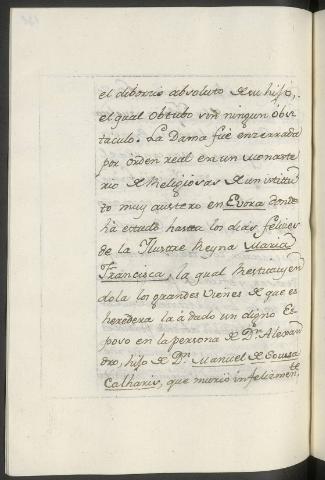 el diborzio absoluto de su hijo,
el qual obtubo sin ningun obs-
taculo. La Dama fue enzerrada
por orden real en un monaste
rio de Religiosas de un istitu
to muy austero en Evora donde
ha estado hasta los dias felizes
de la Ilustre Reyna Maria
Francisca, la qual Restituyen
dola los grandes vienes de que es
heredera la à dado un digno Es
poso en la persona de Dn. Alexan
dro, hijo de Dn. Manuel de Sousa
Calharis, que murió infelizmente